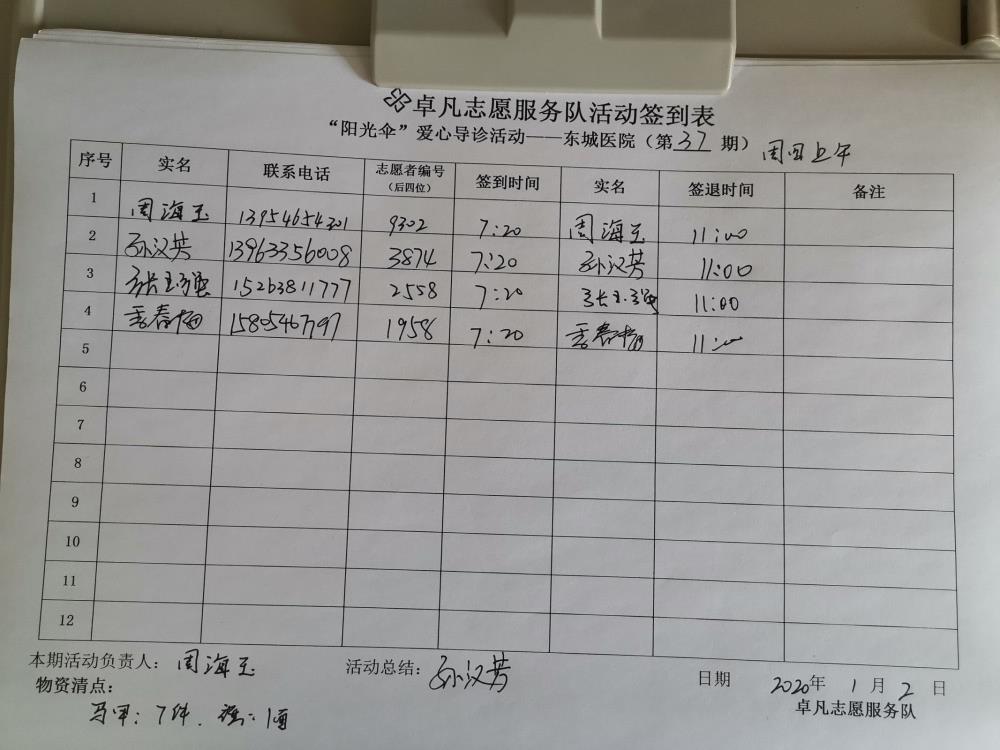 卓凡志愿服务队活动签到表
“阳光伞”爱心导诊活动——东城医院（第 37 期） 周四上午
序号 实名 联系电话 志愿者编号（后四位） 签到时间 实名 签退时间 备注
1 周海玉 13954654301 9302 7:20 周海玉 11:00
2 孙汉芳 13963356008 3874 7:20 孙汉芳 11:00
3 张玉强 15263811777 2558 7:20 张玉强 11:00
4 季春梅 15805467197 1958 7:20 季春梅 11:00
5
6
7
8
9
10
11
12
本期活动负责人： 周海玉 活动总结： 孙汉芳 日期 2020年 1 月 2 日
物资清点： 卓凡志愿服务队
马甲：7件.